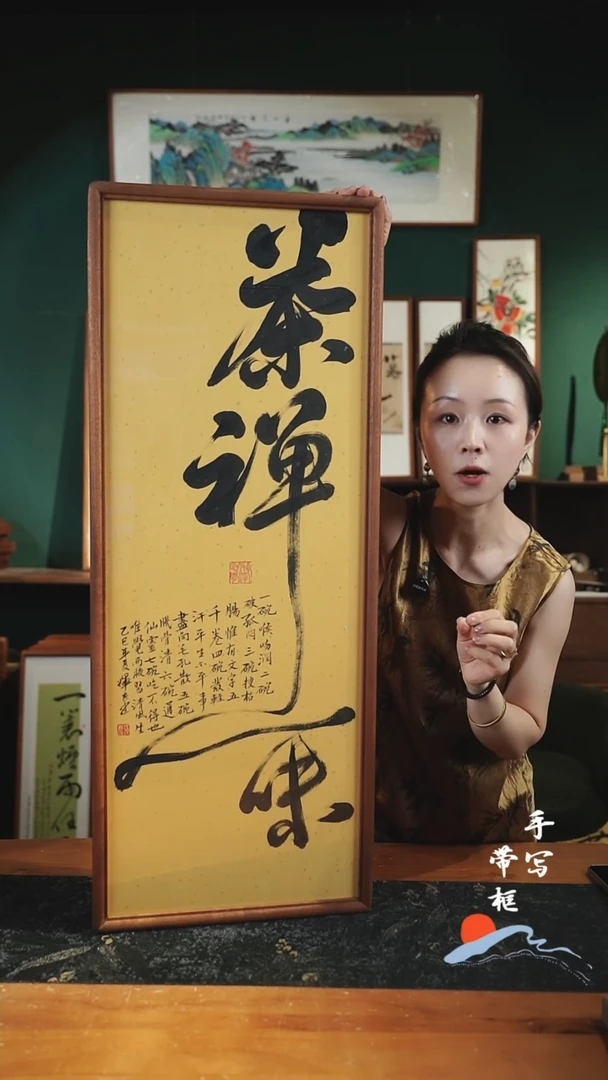 茶禅一味
一碗喉吻潤二碗
破孤悶三碗搜枯
腸惟有文字五
千卷四碗發輕
汗平生不平事
盡向毛孔散五碗
肌骨清六碗通
仙靈七碗吃不得也
唯覺两腋習清風生
乙巳年夏
一蓑煙雨任
手写
带框